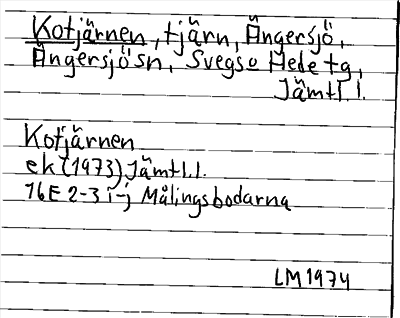 Kotjärnen, tjärn, Ängersjö,
Ängersjö sn, Svegs o Hede tg,
Jämtl.l.
Kotjärnen
ek (1973) Jämtl.l.
16E 2-3 i-j Målingsbodarna
LM 1974